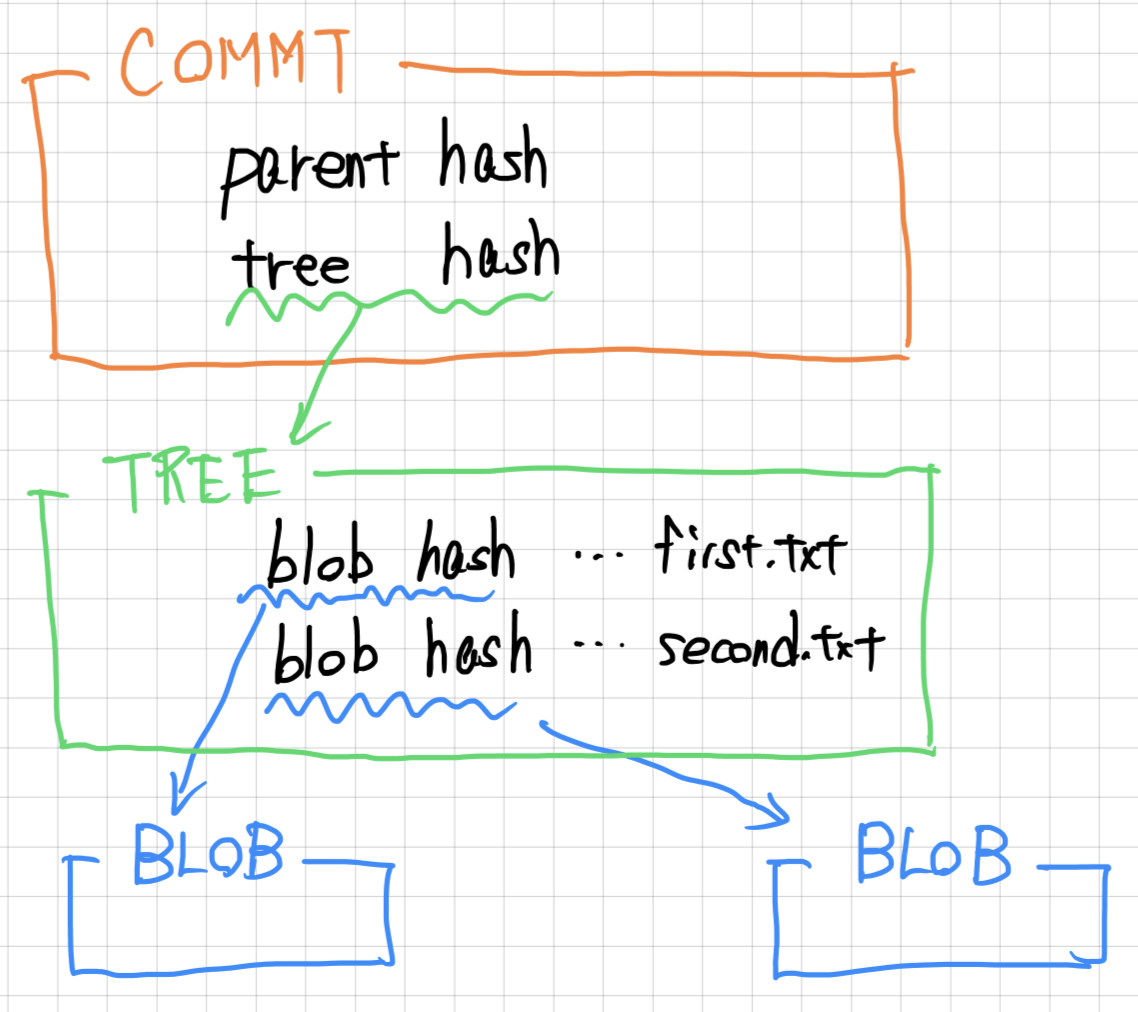 COMMT
parent hash
tree hash
TREE
blob hash ... first.txt
blob hash ... second.txt
BLOB BLOB